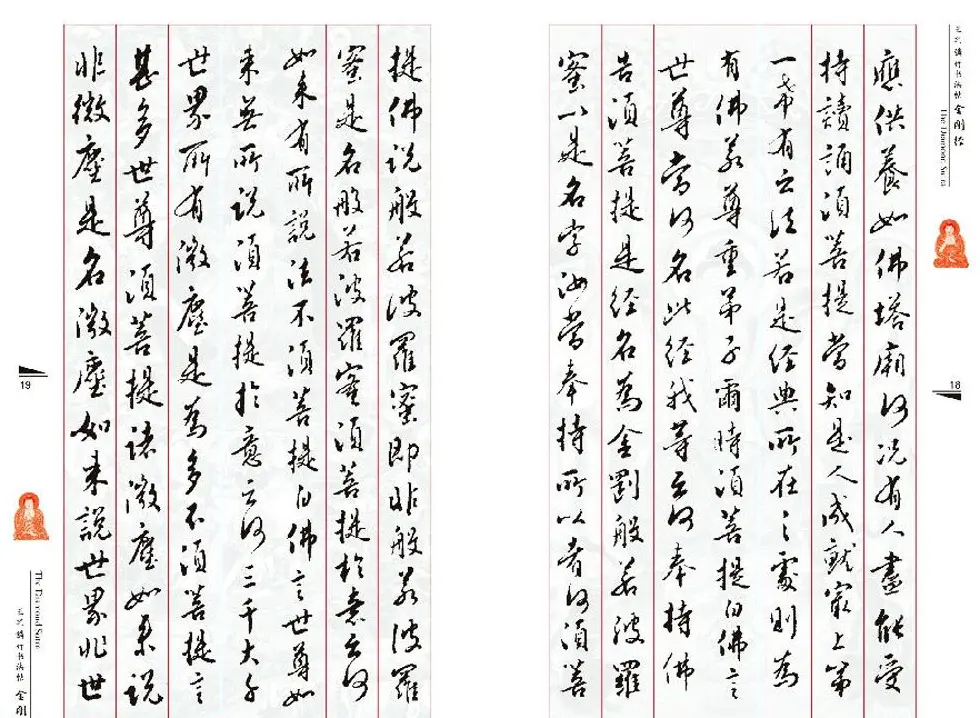 金刚经
The Diamond Sutra
18
應供養如佛塔廟何況有人盡能受
持讀誦須菩提當知是人成就最上第
一希有之法若是經典所在之處則為
有佛若尊重弟子爾時須菩提白佛言
世尊當何名此經我等云何奉持佛
告須菩提是經名為金剛般若波羅
蜜以是名字汝當奉持所以者何須菩
提佛說般若波羅蜜即非般若波羅
蜜是名般若波羅蜜須菩提於意云何
如來有所說法不須菩提白佛言世尊如
來無所說須菩提於意云何三千大千
世界所有微塵是為多不須菩提言
甚多世尊須菩提諸微塵如來說
非微塵是名微塵如來說世界非世
19
The Diamond Sutra
金刚